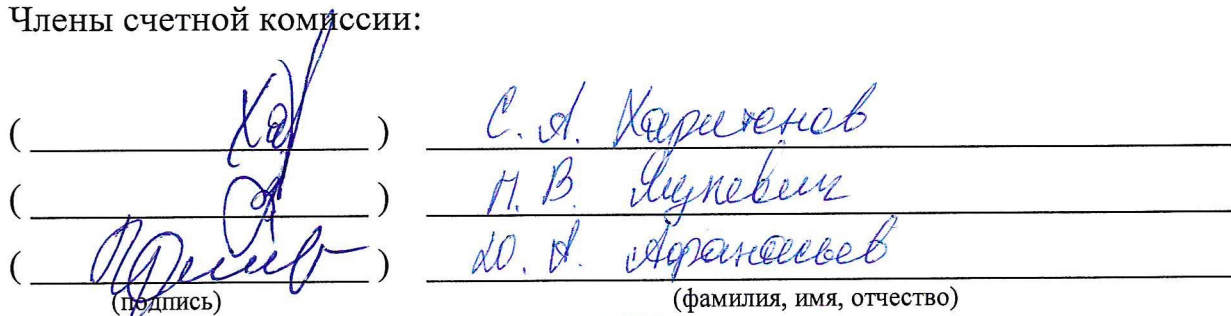 Члены счетной комиссии:
( ) С. А. Харитонов
( ) Н. В.
( ) Ю. А. Афанасьев
(подпись) (фамилия, имя, отчество)